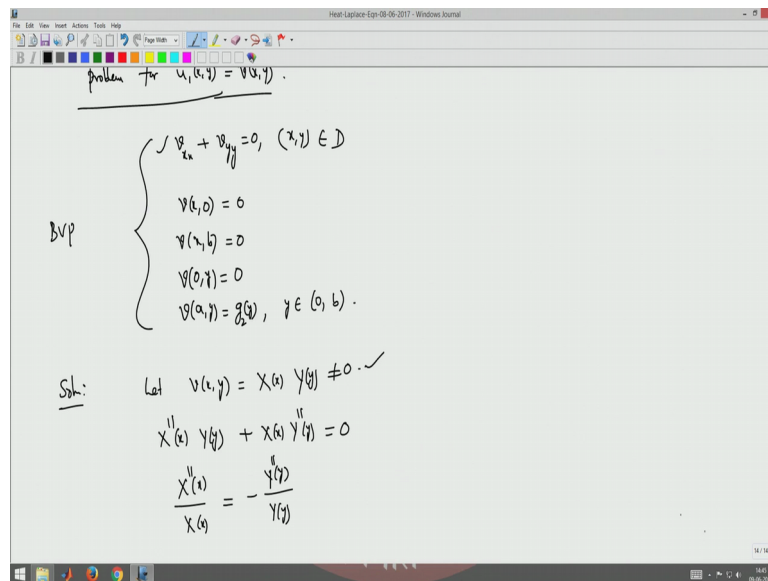 Heat-Laplace-Eqn-08-06-2017 - Windows Journal
File Edit View Insert Actions Tools Help
Page Width
B I
problem for u₁(x,y) = v(x,y).
✓ v_xx + v_yy = 0, (x,y) ∈ D
v(x,0) = 0
BVP
v(x,b) = 0
v(0,y) = 0
v(a,y) = g₂(y), y ∈ (0, b).
Soln: Let v(x,y) = X(x) Y(y) ≠ 0. ✓
X''(x) Y(y) + X(x) Y''(y) = 0
X''(x)/X(x) = - Y''(y)/Y(y)
14 / 14
14:45